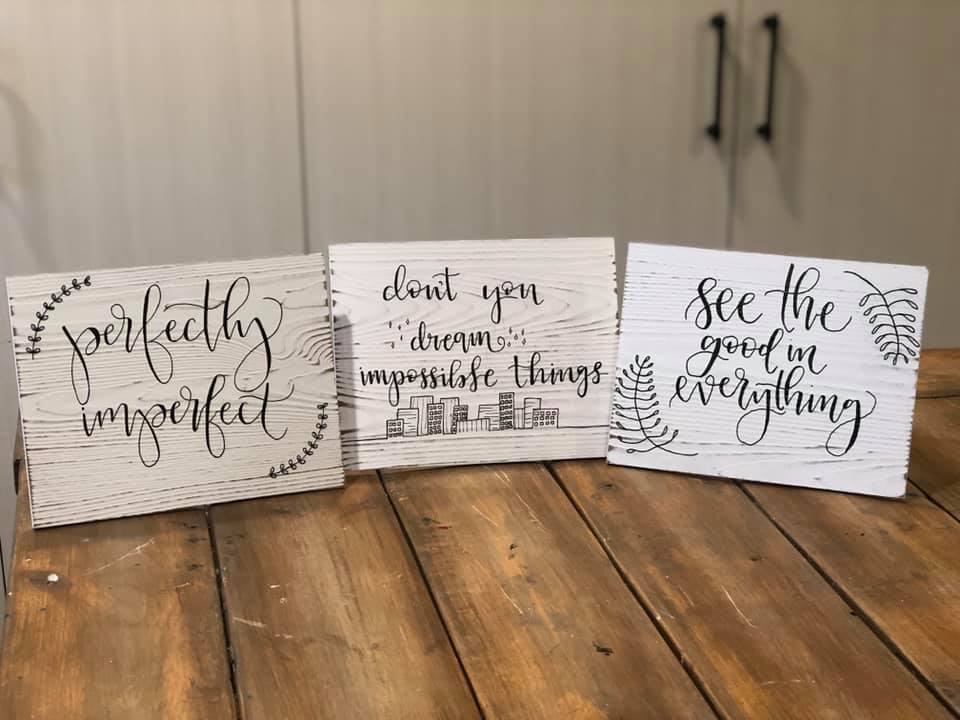 perfectly
imperfect
don't you
dream
impossible things
see the
good in
everything